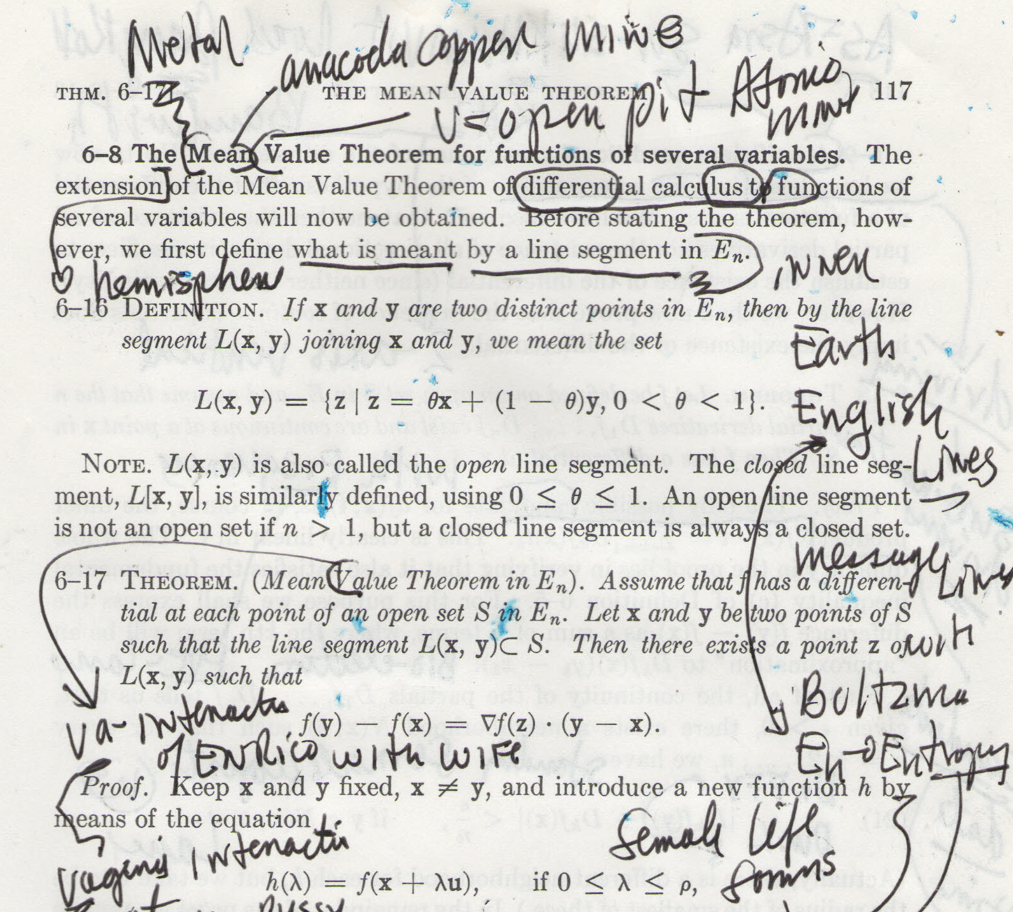 Metal
anacoda copper mine
THM. 6–17 THE MEAN VALUE THEOREM 117
V = open pit Atomic
mind
6–8 The Mean Value Theorem for functions of several variables. The
extension of the Mean Value Theorem of differential calculus to functions of
several variables will now be obtained. Before stating the theorem, how-
ever, we first define what is meant by a line segment in Eₙ.
hemisphere
inner
6–16 DEFINITION. If x and y are two distinct points in Eₙ, then by the line
segment L(x, y) joining x and y, we mean the set
Earth
L(x, y) = {z | z = θx + (1 − θ)y, 0 < θ < 1}.
English
Lines
NOTE. L(x, y) is also called the open line segment. The closed line seg-
ment, L[x, y], is similarly defined, using 0 ≤ θ ≤ 1. An open line segment
is not an open set if n > 1, but a closed line segment is always a closed set.
message
Lines
6–17 THEOREM. (Mean Value Theorem in Eₙ). Assume that f has a differen-
tial at each point of an open set S in Eₙ. Let x and y be two points of S
such that the line segment L(x, y) ⊂ S. Then there exists a point z of
L(x, y) such that
with
Boltzma
va-Interactio
f(y) − f(x) = ∇f(z) · (y − x).
of Enrico with wife
En → Entropy
Proof. Keep x and y fixed, x ≠ y, and introduce a new function h by
means of the equation
female life
forms
vagina interactio
h(λ) = f(x + λu), if 0 ≤ λ ≤ ρ,
pussy